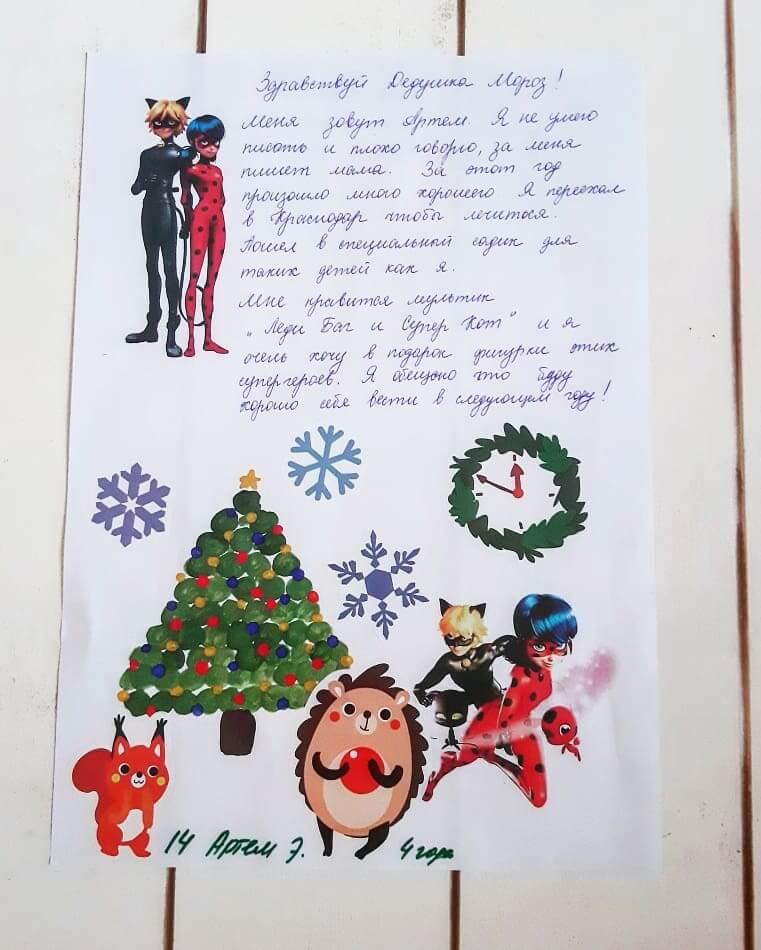 Здравствуй Дедушка Мороз!
Меня зовут Артем. Я не умею
писать и плохо говорю, за меня
пишет мама. За этот год
произошло много хорошего Я переехал
в Краснодар чтобы лечиться.
Пошел в специальный садик для
таких детей как я.
Мне нравится мультик
„Леди Баг и Супер Кот" и я
очень хочу в подарок фигурки этих
супергероев. Я обещаю что буду
хорошо себя вести в следующем году!
14 Артем Э. 4 года